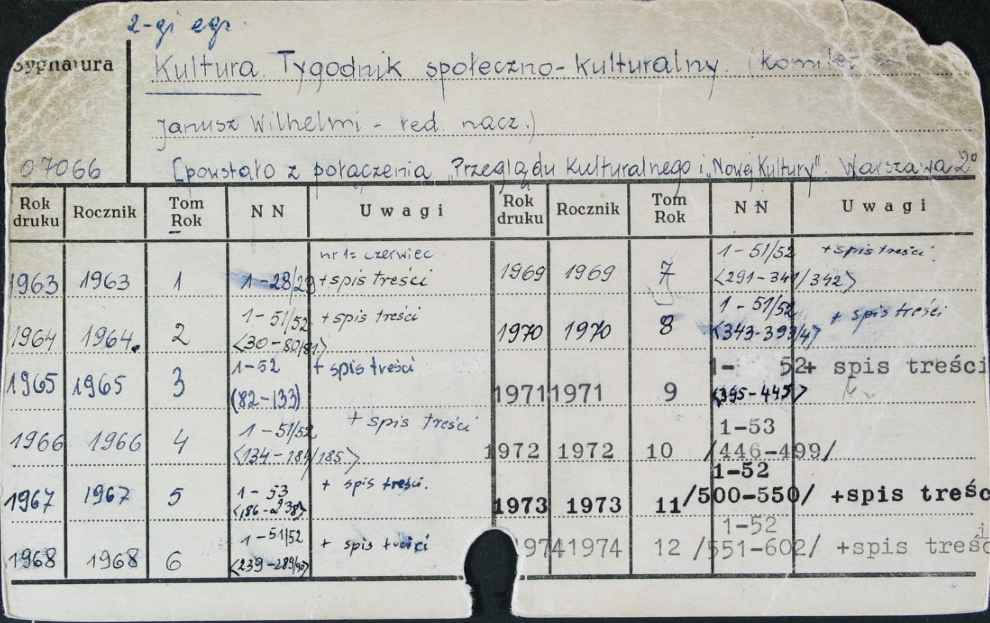 2-gi egz.
Sygnatura
Kultura. Tygodnik społeczno-kulturalny.
Janusz Wilhelmi - red. nacz.)
07066
[powstało z połączenia "Przeglądu Kulturalnego i "Nowej Kultury". Warszawa 2°
Rok druku Rocznik Tom Rok NN Uwagi Rok druku Rocznik Tom Rok NN Uwagi
nr 1= czerwiec
1963 1963 1 1-28/29 +spis treści
1-51/52 + spis treści
1964 1964. 2 <30-80/81>
1-52 + spis treści
1965 1965 3 (82-133)
1-51/52 + spis treści
1966 1966 4 <134-184/185>
1967 1967 5 1-53 + spis treści.
<186-238>
1-51/52
1968 1968 6 + spis treści
<239-289/90>
1-51/52 +spis treści.
1969 1969 7 <291-341/342>
1-51/52 + spis treści
1970 1970 8 <343-393/4>
1- 52+ spis treści
1971 1971 9 <395-445>
1-53
1972 1972 10 /446-499/
1-52
1973 1973 11 /500-550/ +spis treśc
1-52
1974 1974 12 /551-602/ +spis treści